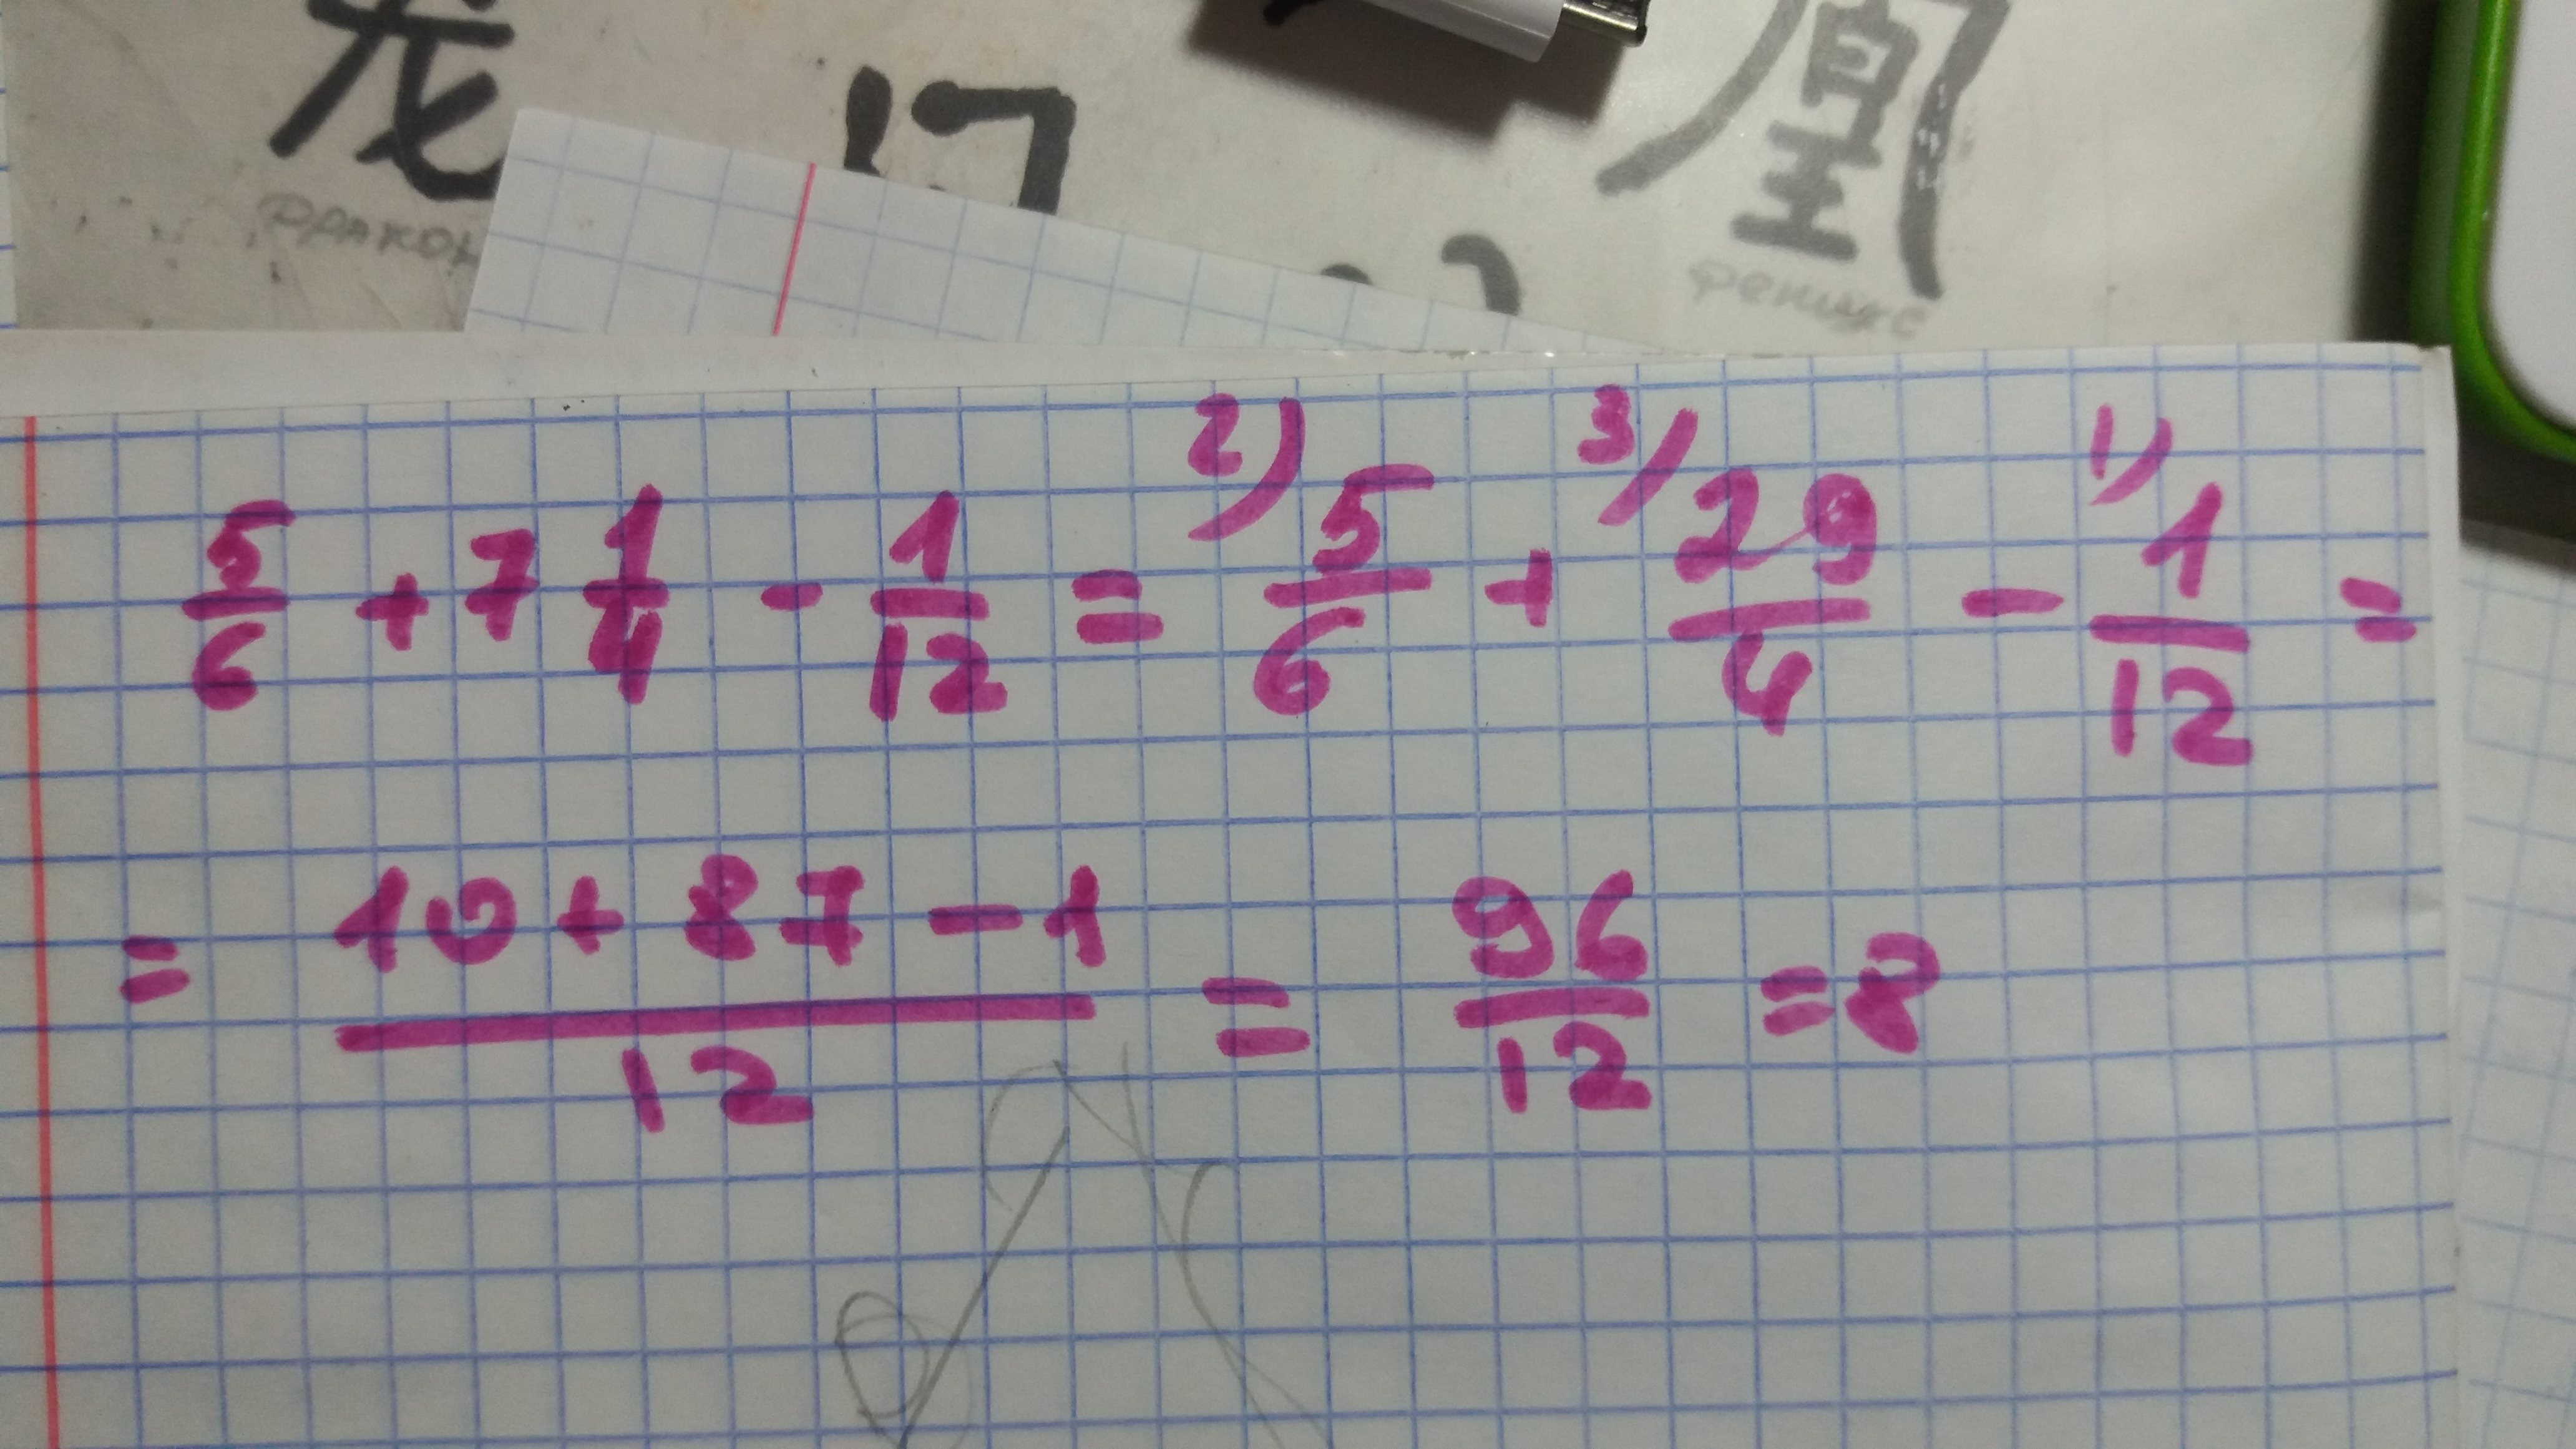 龙
凰
дракон
феникс
5/6 + 7 1/4 - 1/12 = 2) 5/6 + 3) 29/4 - 1) 1/12 =
= (10 + 87 - 1)/12 = 96/12 = 8